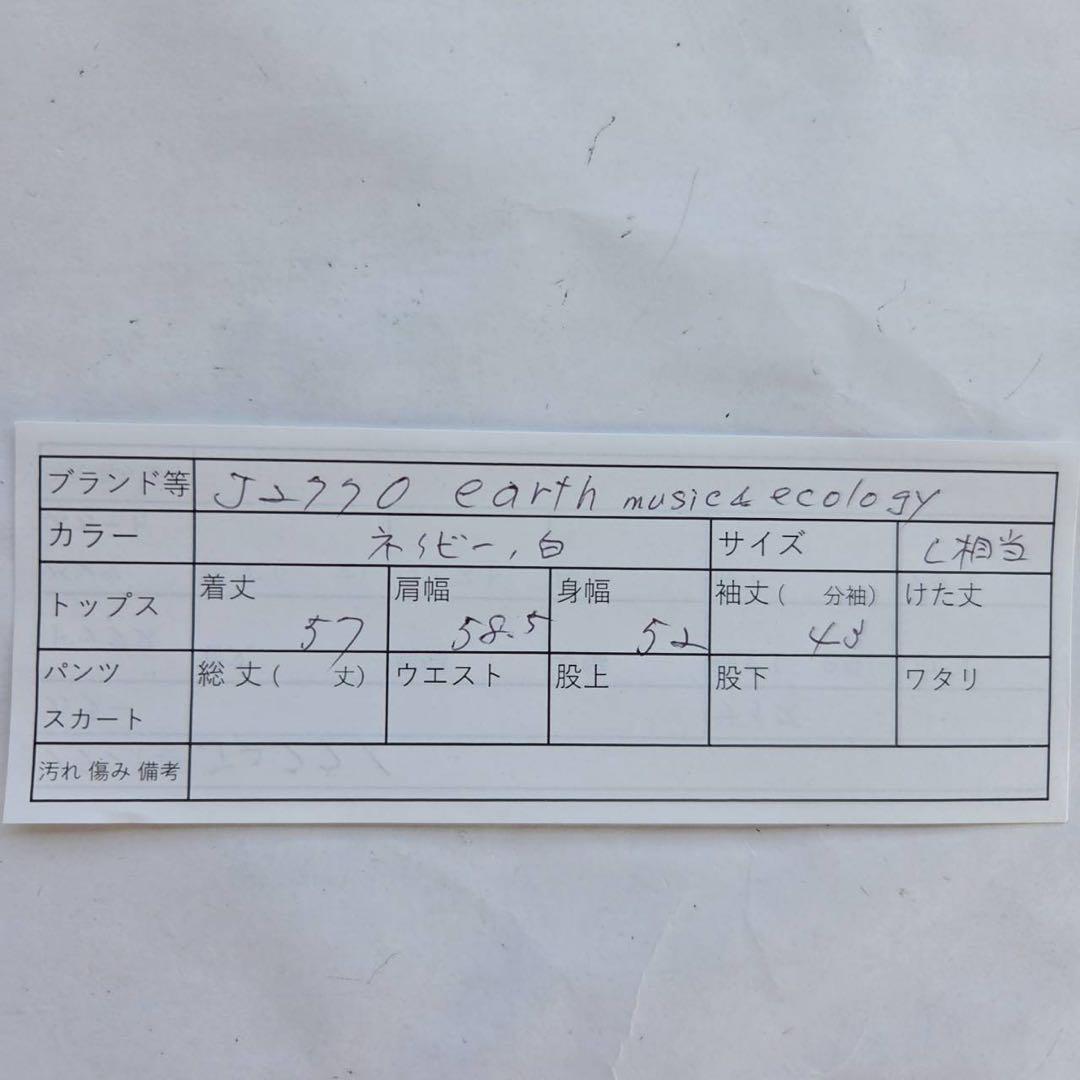 ブランド等 J2770 earth music & ecology
カラー ネイビー、白 サイズ L相当
トップス 着丈 57 肩幅 58.5 身幅 52 袖丈( 分袖) 43 けた丈
パンツ スカート 総丈( 丈) ウエスト 股上 股下 ワタリ
汚れ 傷み 備考